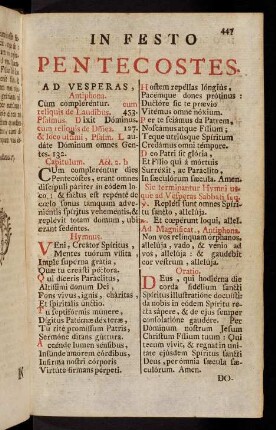 447
IN FESTO
PENTECOSTES.
AD VESPERAS,
Antiphona.
Cum complerentur. cum
reliquis de Laudibus. 453.
Psalmus. Dixit Dóminus.
cum reliquis de Dñica. 127.
& loco ultimi, Psalm. Laudáte Dóminum omnes Gentes. 132.
Capitulum. Act. 2. b
CUm compleréntur dies
Pentecóstes, erant omnes
discípuli páriter in eódem loco: & factus est repénte de
cœlo sonus tamquam adveniéntis spíritus veheméntis, &
replévit totam domum, ubi
erant sedéntes.
Hymnus.
VEni, Creátor Spíritus
Mentes tuórum vísita
Imple supérna grátia,
Quæ tu creásti péctora.
Qui díceris Paráclitus,
Altíssimi donum Dei,
Fons vivus, ignis, cháritas,
Et spiritális únctio.
Tu septifórmis múnere,
Dígitus Patérnæ déxteræ,
Tu rite promíssum Patris,
Sermóne ditans gúttura.
Accénde lumen sénsibus,
Infúnde amórem córdibus,
Infírma nostri córporis
Virtúte firmans pérpeti.
Hostem repéllas lóngius,
Pacémque dones prótinus:
Ductóre sic te prævio
Vitémus omne nóxium.
Per te sciámus da Patrem,
Noscámus atque Fílium,
Teque utriúsque Spíritum
Credámus omni témpore.
Deo Patri sit glória,
Et Fílio qui à mórtuis
Surréxit, ac Paráclito,
In sæculórum sæcula. Amen.
Sic terminantur Hymni usque ad Vesperas Sabbati seq.
℣. Repléti sunt omnes Spíritu sancto, allelúja.
℞. Et cœpérunt loqui, allel.
Ad Magnificat, Antiphona.
Non vos relínquam órphanos,
allelúja, vado, & vénio ad
vos, allelúja: & gaudébit
cor vestrum, allelúja.
Oratio.
DEus, qui hodiérna die
corda fidélium sancti
Spíritus illustratióne docuísti:
da nobis in eódem Spíritu recta sápere, & de ejus semper
consolatióne gaudére. Per
Dóminum nostrum Jesum
Christum Fílium tuum: Qui
tecum vivit, & regnat in unitáte ejúsdem Spíritus sancti
Deus, per ómnia sæcula sæculórum. Amen.
DO-